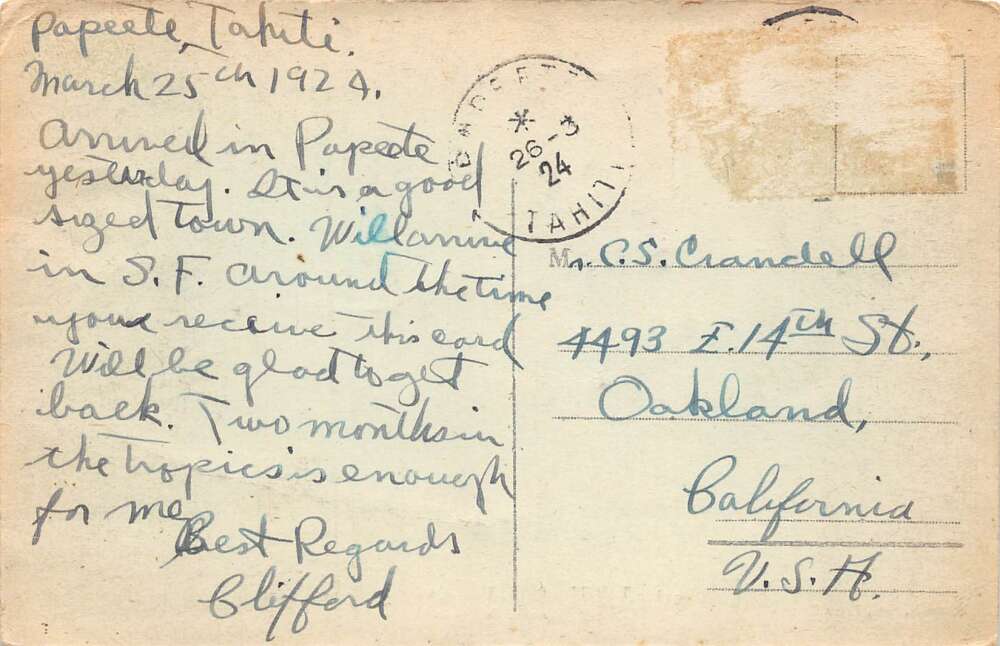 Papeete, Tahiti.
March 25th 1924.
Arrived in Papeete
yesterday. It is a good
sized town. Will arrive
in S. F. around the time
you receive this card
Will be glad to get
back. Two months in
the tropics is enough
for me
Best Regards
Clifford
PAPEETE
26-3
24
TAHITI
Mr. C. S. Crandell
4493 E. 14th St.,
Oakland,
California
U.S.A.